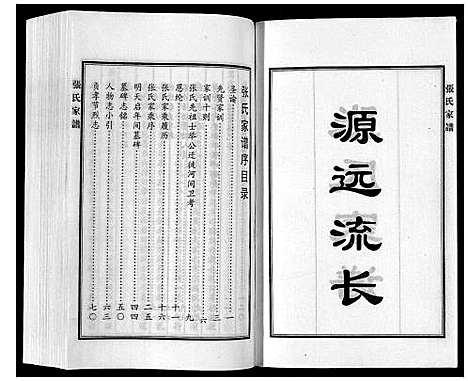 張氏家譜
源远流长
张氏家谱序目录
圣谕……一
先贤家训……三
家训十则……六
张氏先祖士举公迁徙河间卫考……九
恩纶……十一
张氏家乘履历……十六
张氏家乘序……二五
明天启年间墓碑……四四
墓碑志铭……五〇
人物志小引……六三
贞孝节烈志……七〇
張氏家譜